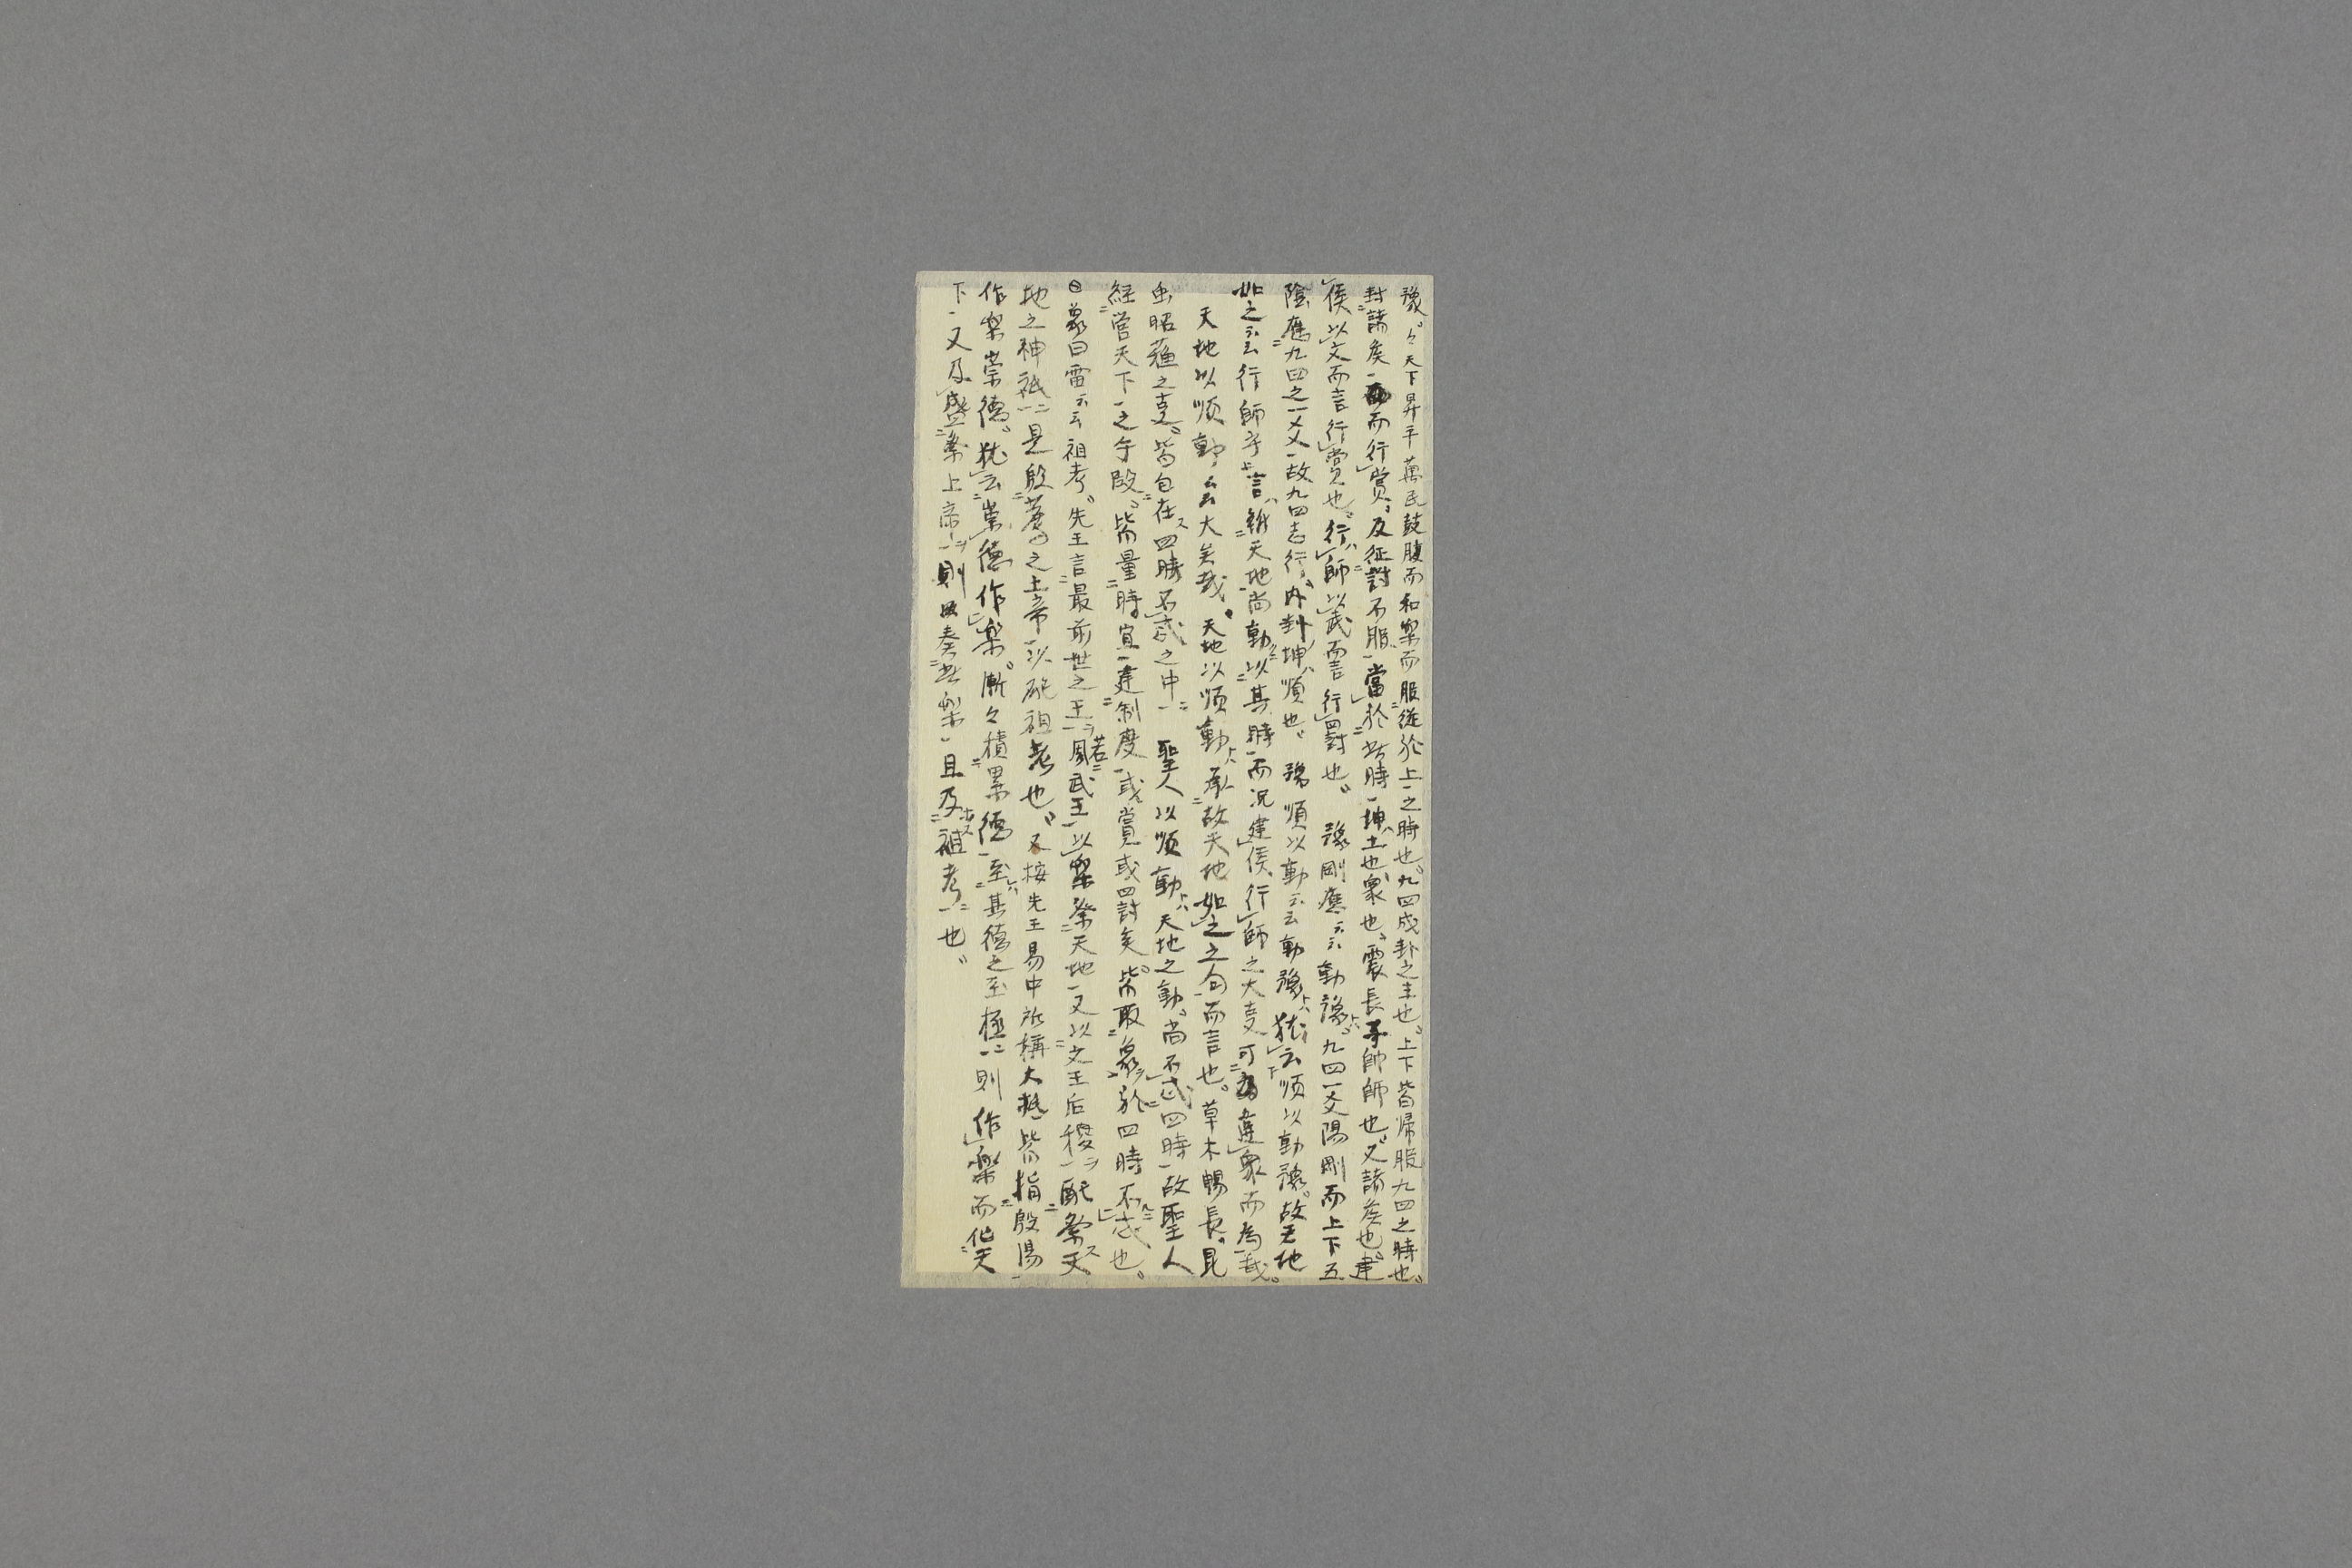 豫〻天下昇平萬民鼓腹而和楽而服從於上之時也九四成卦之主也上下皆帰服九四之時也
封諸侯而行賞及征討不服當於此時坤土也衆也震長子帥師也又諸侯也建
侯以文而言行賞也行師以武而言行罰也豫剛應云云動豫九四一爻陽剛而上下五
陰應九四之一爻故九四志行内卦坤順也豫順以動云云動豫犹云順以動豫故天地
如之云云行師乎言雖天地尚動以其時而況建侯行師之大事可違衆而為哉
天地以順動云云大矣哉天地以順動承故天地如之之句而言也草木暢長昆
虫昭蘓之事皆包在四時不忒之中聖人以順動天地之動尚不忒四時故聖人
経営天下之手段皆量時宜建制度或賞或四討矣皆取象於四時不忒也
象曰雷云云祖考先王言最前世之王若武王以楽祭天地又以文王后稷配祭天
地之神祇是殷薦之上帝以配祖考也又按先王易中所稱大抵皆指殷湯
作楽崇德犹云崇德作楽漸々積累德至其德之至極則作楽而化天
下又及盛祭上帝則奏此楽且及祖考也